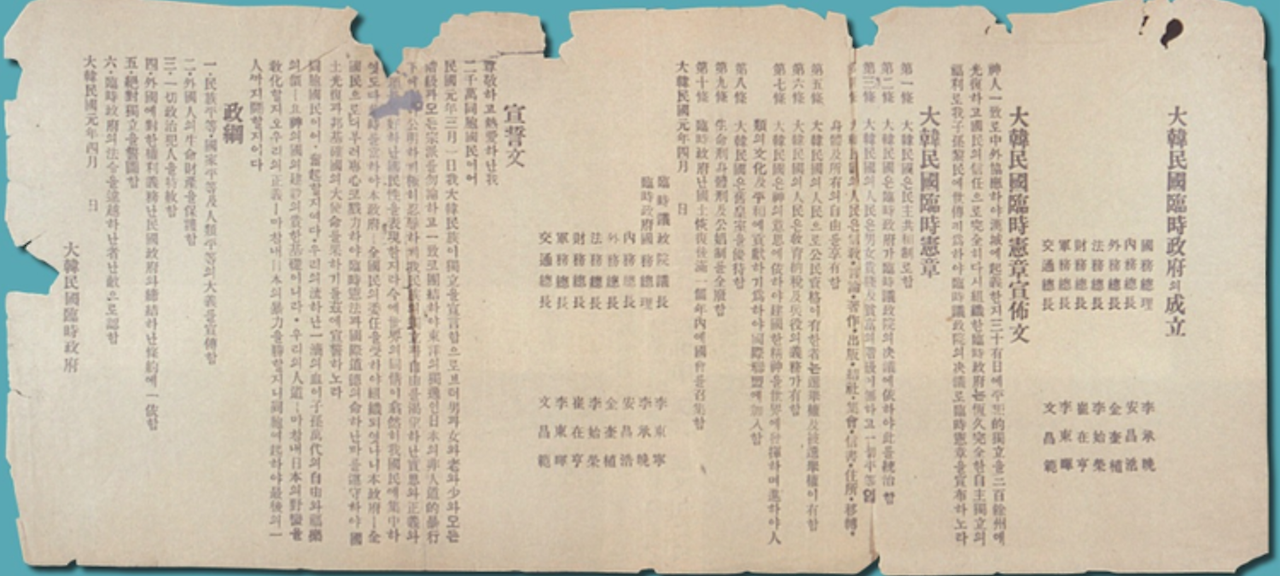 大韓民國臨時政府의成立
國務總理 李承晚
內務總長 安昌浩
外務總長 金奎植
法務總長 李始榮
財務總長 崔在亨
軍務總長 李東輝
交通總長 文昌範
大韓民國臨時憲章宣佈文
神人一致로中外協應하야漢城에起義한지三十有日에平和的獨立을三百餘州에
光復하고國民의信任으로完全히다시組織한臨時政府는恆久完全한自主獨立의
福利로我子孫黎民에世傳키爲하야臨時議政院의決議로臨時憲章을宣布하노라
大韓民國臨時憲章
第一條 大韓民國은民主共和制로함
第二條 大韓民國은臨時政府가臨時議政院의決議에依하야此를統治함
第三條 大韓民國의人民은男女貴賤及貧富의階級이無하고一切平等임
大韓民國의人民은信敎・言論・著作・出版・結社・集會・信書・住所・移轉・
身體及所有의自由를享有함
第五條 大韓民國의人民으로公民資格이有한者는選擧權及被選擧權이有함
第六條 大韓民國의人民은敎育納稅及兵役의義務가有함
第七條 大韓民國은神의意思에依하야建國한精神을世界에發揮하며進하야人
類의文化及平和에貢獻하기爲하야國際聯盟에加入함
第八條 大韓民國은舊皇室을優待함
第九條 生命刑身體刑及公娼制를全廢함
第十條 臨時政府난國土恢復後滿一個年內에國會를召集함
大韓民國元年四月 日
臨時議政院議長 李東寧
臨時政府國務總理 李承晚
內務總長 安昌浩
外務總長 金奎植
法務總長 李始榮
財務總長 崔在亨
軍務總長 李東輝
交通總長 文昌範
宣誓文
尊敬하고熱愛하난我
二千萬同胞國民이여
民國元年三月一日我大韓民族이獨立을宣言함으로브터男과女와老와少와모든
階級과모든宗派를勿論하고一致로團結하야東洋의獨逸인日本의非人道的暴行
下에公明하게極히忍辱하게我民族의獨立과自由를渴望하난實思와正義와
國民性을表現한지라今에世界의同情이翕然히我國民에集中하
時를當하야本政府ㅣ全國民의委任을受하야組織되엿나니本政府ㅣ全
國民으로더부러專心코戮力하야臨時憲法과國際道德의命하난바를遵守하야國
土光復과邦基確國의大使命을果하기를玆에宣誓하노라
同胞國民이여・奮起할지어다・우리의流하난一滴의血이子孫萬代의自由와福樂
의價ㅣ요神의國의建設의貴한基礎이니라・우리의人道ㅣ마참내日本의野蠻을
敎化할지오우리의正義ㅣ마참내日本의暴力을勝할지니同胞여起하야最後의一
人까지鬪할지어다
政綱
一・民族平等・國家平等及人類平等의大義를宣傳함
二・外國人의生命財產을保護함
三・一切政治犯人을特赦함
四・外國에對한權利義務난民國政府와締結하난條約에一依함
五・絕對獨立을誓圖함
六・臨時政府의法令을違越하난者난敵으로認함
大韓民國元年四月 日
大韓民國臨時政府